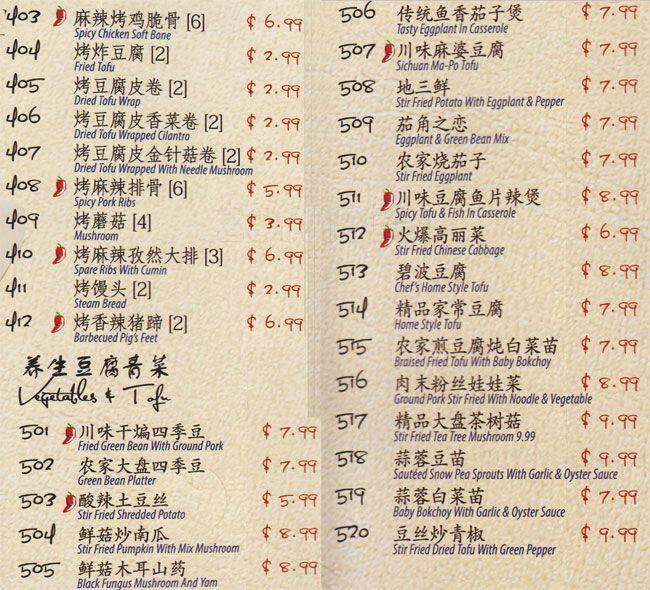 403 麻辣烤鸡脆骨 [6] ¢ 6.99
Spicy Chicken Soft Bone
404 烤炸豆腐 [2] ¢ 2.99
Fried Tofu
405 烤豆腐皮卷 [2] ¢ 2.99
Dried Tofu Wrap
406 烤豆腐皮香菜卷 [2] ¢ 2.99
Dried Tofu Wrapped Cilantro
407 烤豆腐皮金针菇卷 [2] ¢ 2.99
Dried Tofu Wrapped With Needle Mushroom
408 烤麻辣排骨 [6] ¢ 5.99
Spicy Pork Ribs
409 烤蘑菇 [4] ¢ 3.99
Mushroom
410 烤麻辣孜然大排 [3] ¢ 6.99
Spare Ribs With Cumin
411 烤馒头 [2] ¢ 2.99
Steam Bread
412 烤香辣猪蹄 [2] ¢ 6.99
Barbecued Pig's Feet
养生豆腐青菜
Vegetables & Tofu
501 川味干煸四季豆 ¢ 7.99
Fried Green Bean With Ground Pork
502 农家大盘四季豆 ¢ 7.99
Green Bean Platter
503 酸辣土豆丝 ¢ 5.99
Stir Fried Shredded Potato
504 鲜菇炒南瓜 ¢ 8.99
Stir Fried Pumpkin With Mix Mushroom
505 鲜菇木耳山药 ¢ 8.99
Black Fungus Mushroom And Yam
506 传统鱼香茄子煲 ¢ 7.99
Tasty Eggplant In Casserole
507 川味麻婆豆腐 ¢ 7.99
Sichuan Ma-Po Tofu
508 地三鲜 ¢ 7.99
Stir Fried Potato With Eggplant & Pepper
509 茄角之恋 ¢ 7.99
Eggplant & Green Bean Mix
510 农家烧茄子 ¢ 7.99
Stir Fried Eggplant
511 川味豆腐鱼片辣煲 ¢ 8.99
Spicy Tofu & Fish In Casserole
512 火爆高丽菜 ¢ 6.99
Stir Fried Chinese Cabbage
513 碧波豆腐 ¢ 8.99
Chef's Home Style Tofu
514 精品家常豆腐 ¢ 7.99
Home Style Tofu
515 农家煎豆腐炖白菜苗 ¢ 7.99
Braised Fried Tofu With Baby Bokchoy
516 肉末粉丝娃娃菜 ¢ 8.99
Ground Pork Stir Fried With Noodle & Vegetable
517 精品大盘茶树菇 ¢ 9.99
Stir Fried Tea Tree Mushroom 9.99
518 蒜蓉豆苗 ¢ 9.99
Sautéed Snow Pea Sprouts With Garlic & Oyster Sauce
519 蒜蓉白菜苗 ¢ 7.99
Baby Bokchoy With Garlic & Oyster Sauce
520 豆丝炒青椒 ¢ 9.99
Stir Fried Dried Tofu With Green Pepper